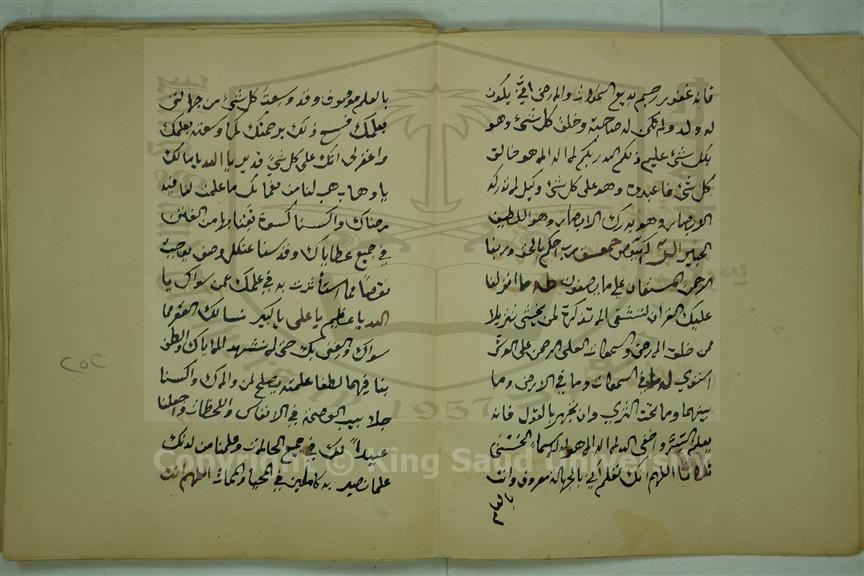 فانه غفور رحيم بديع السموات والارض انى يكون
له ولد ولم تكن له صاحبة وخلق كل شئ وهو
بكل شئ عليم ذلكم الله ربكم لا اله الا هو خالق
كل شئ فاعبدوه وهو على كل شئ وكيل لا تدركه
الابصار وهو يدرك الابصار وهو اللطيف
الخبير الر كهيعص حمعسق رب احكم بالحق وربنا
الرحمن المستعان على ما تصفون طه ما انزلنا
عليك القران لتشقى الا تذكرة لمن يخشى تنزيلا
ممن خلق الارض والسموات العلى الرحمن على العرش
استوى له ما في السموات وما في الارض وما
بينهما وما تحت الثرى وان تجهر بالقول فانه
يعلم السر واخفى الله لا اله الا هو له الاسماء الحسنى
ثلاثا اللهم انك تعلم اني بالجهالة معروف وانت
بالعلم
بالعلم موصوف وقد وسعت كل شئ من جهالتي
بعلمك فسع ذلك برحمتك كما وسعته بعلمك
واغفر لي انك على كل شئ قدير يا الله يا مالك
يا وهاب هب لنا من نعماك ما علمت لنا فيه
رضاك واكسنا كسوة تقينا بها من الفتن
في جميع عطاياك وقدسنا عن كل وصف يوجب
نقصا مما استأثرت به في علمك عمن سواك يا
الله يا عظيم يا علي يا كبير نسألك الفقر مما
سواك والغنى بك حتى لا نشهد الا اياك والطف
بنا فيهما لطفا علمته يصلح لمن والاك واكسنا
جلابيب العصمة في الانفاس واللحظات واجعلنا
عبيدا لك في جميع الحالات وعلمنا من لدنك
علما نصير به كاملين في المحيا والممات اللهم انت
Copyright © King Saud University
1957